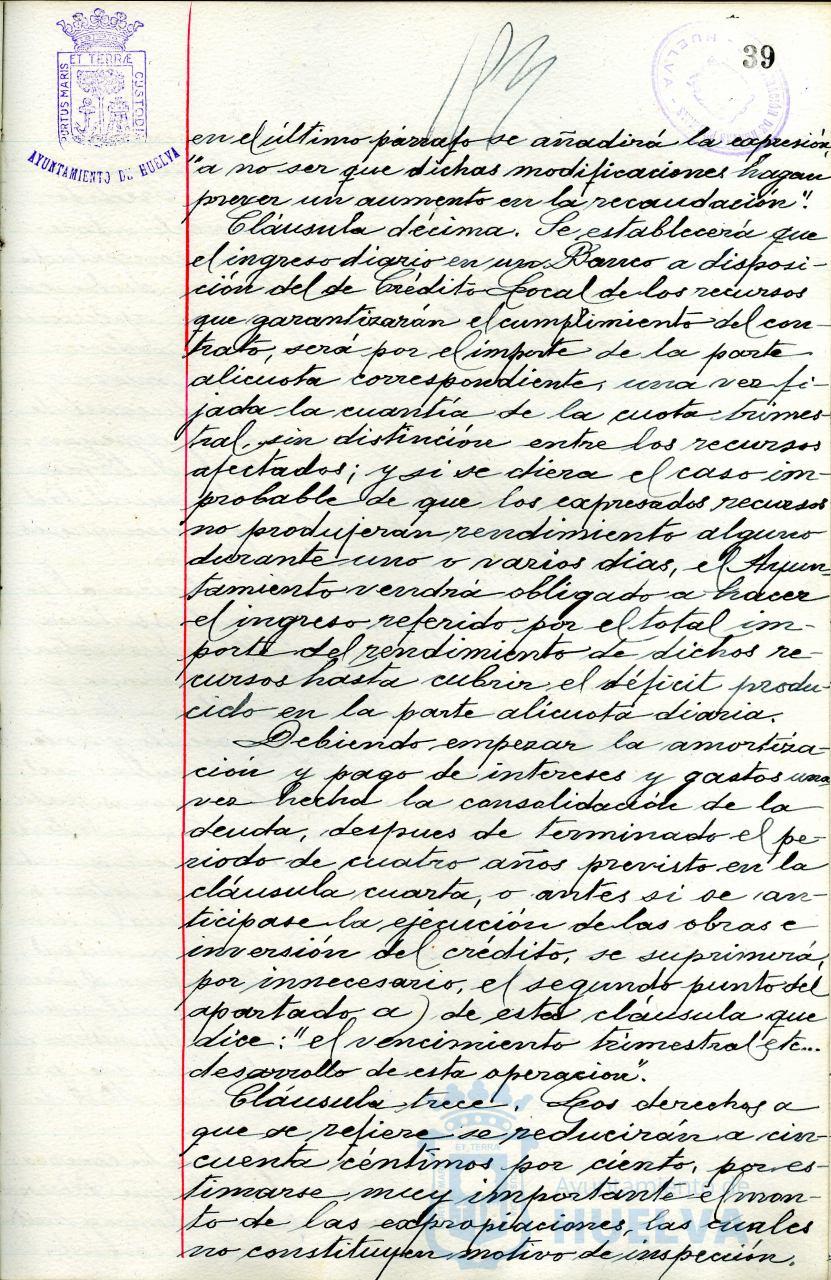 39
PORTUS MARIS
ET TERRÆ
CUSTODIA
AYUNTAMIENTO DE HUELVA
HUELVA
en el último párrafo se añadirá la expresión,
"a no ser que dichas modificaciones hagan
prever un aumento en la recaudación".
Cláusula décima. Se establecerá que
el ingreso diario en un Banco a disposi-
ción del de Crédito Local de los recursos
que garantizarán el cumplimiento del con-
trato, será por el importe de la parte
alicuota correspondiente, una vez fi-
jada la cuantía de la cuota trimes-
tral, sin distinción entre los recursos
afectados; y si se diera el caso im-
probable de que los expresados recursos
no produjeran rendimiento alguno
durante uno o varios dias, el Ayun-
tamiento vendrá obligado a hacer
el ingreso referido por el total im-
porte del rendimiento de dichos re-
cursos hasta cubrir el déficit produ-
cido en la parte alicuota diaria.
Debiendo empezar la amortiza-
ción y pago de intereses y gastos una
vez hecha la consolidación de la
deuda, despues de terminado el pe-
riodo de cuatro años previsto en la
cláusula cuarta, o antes si se an-
ticipase la ejecución de las obras e
inversión del crédito, se suprimirá,
por innecesario, el segundo punto del
apartado a) de esta cláusula que
dice: "el vencimiento trimestral etc...
desarrollo de esta operacion".
Cláusula trece. Los derechos a
que se refiere se reducirán a cin-
cuenta céntimos por ciento, por es-
timarse muy importante el mon-
to de las expropiaciones, las cuales
no constituyen motivo de inspección.
Ayuntamiento de
HUELVA